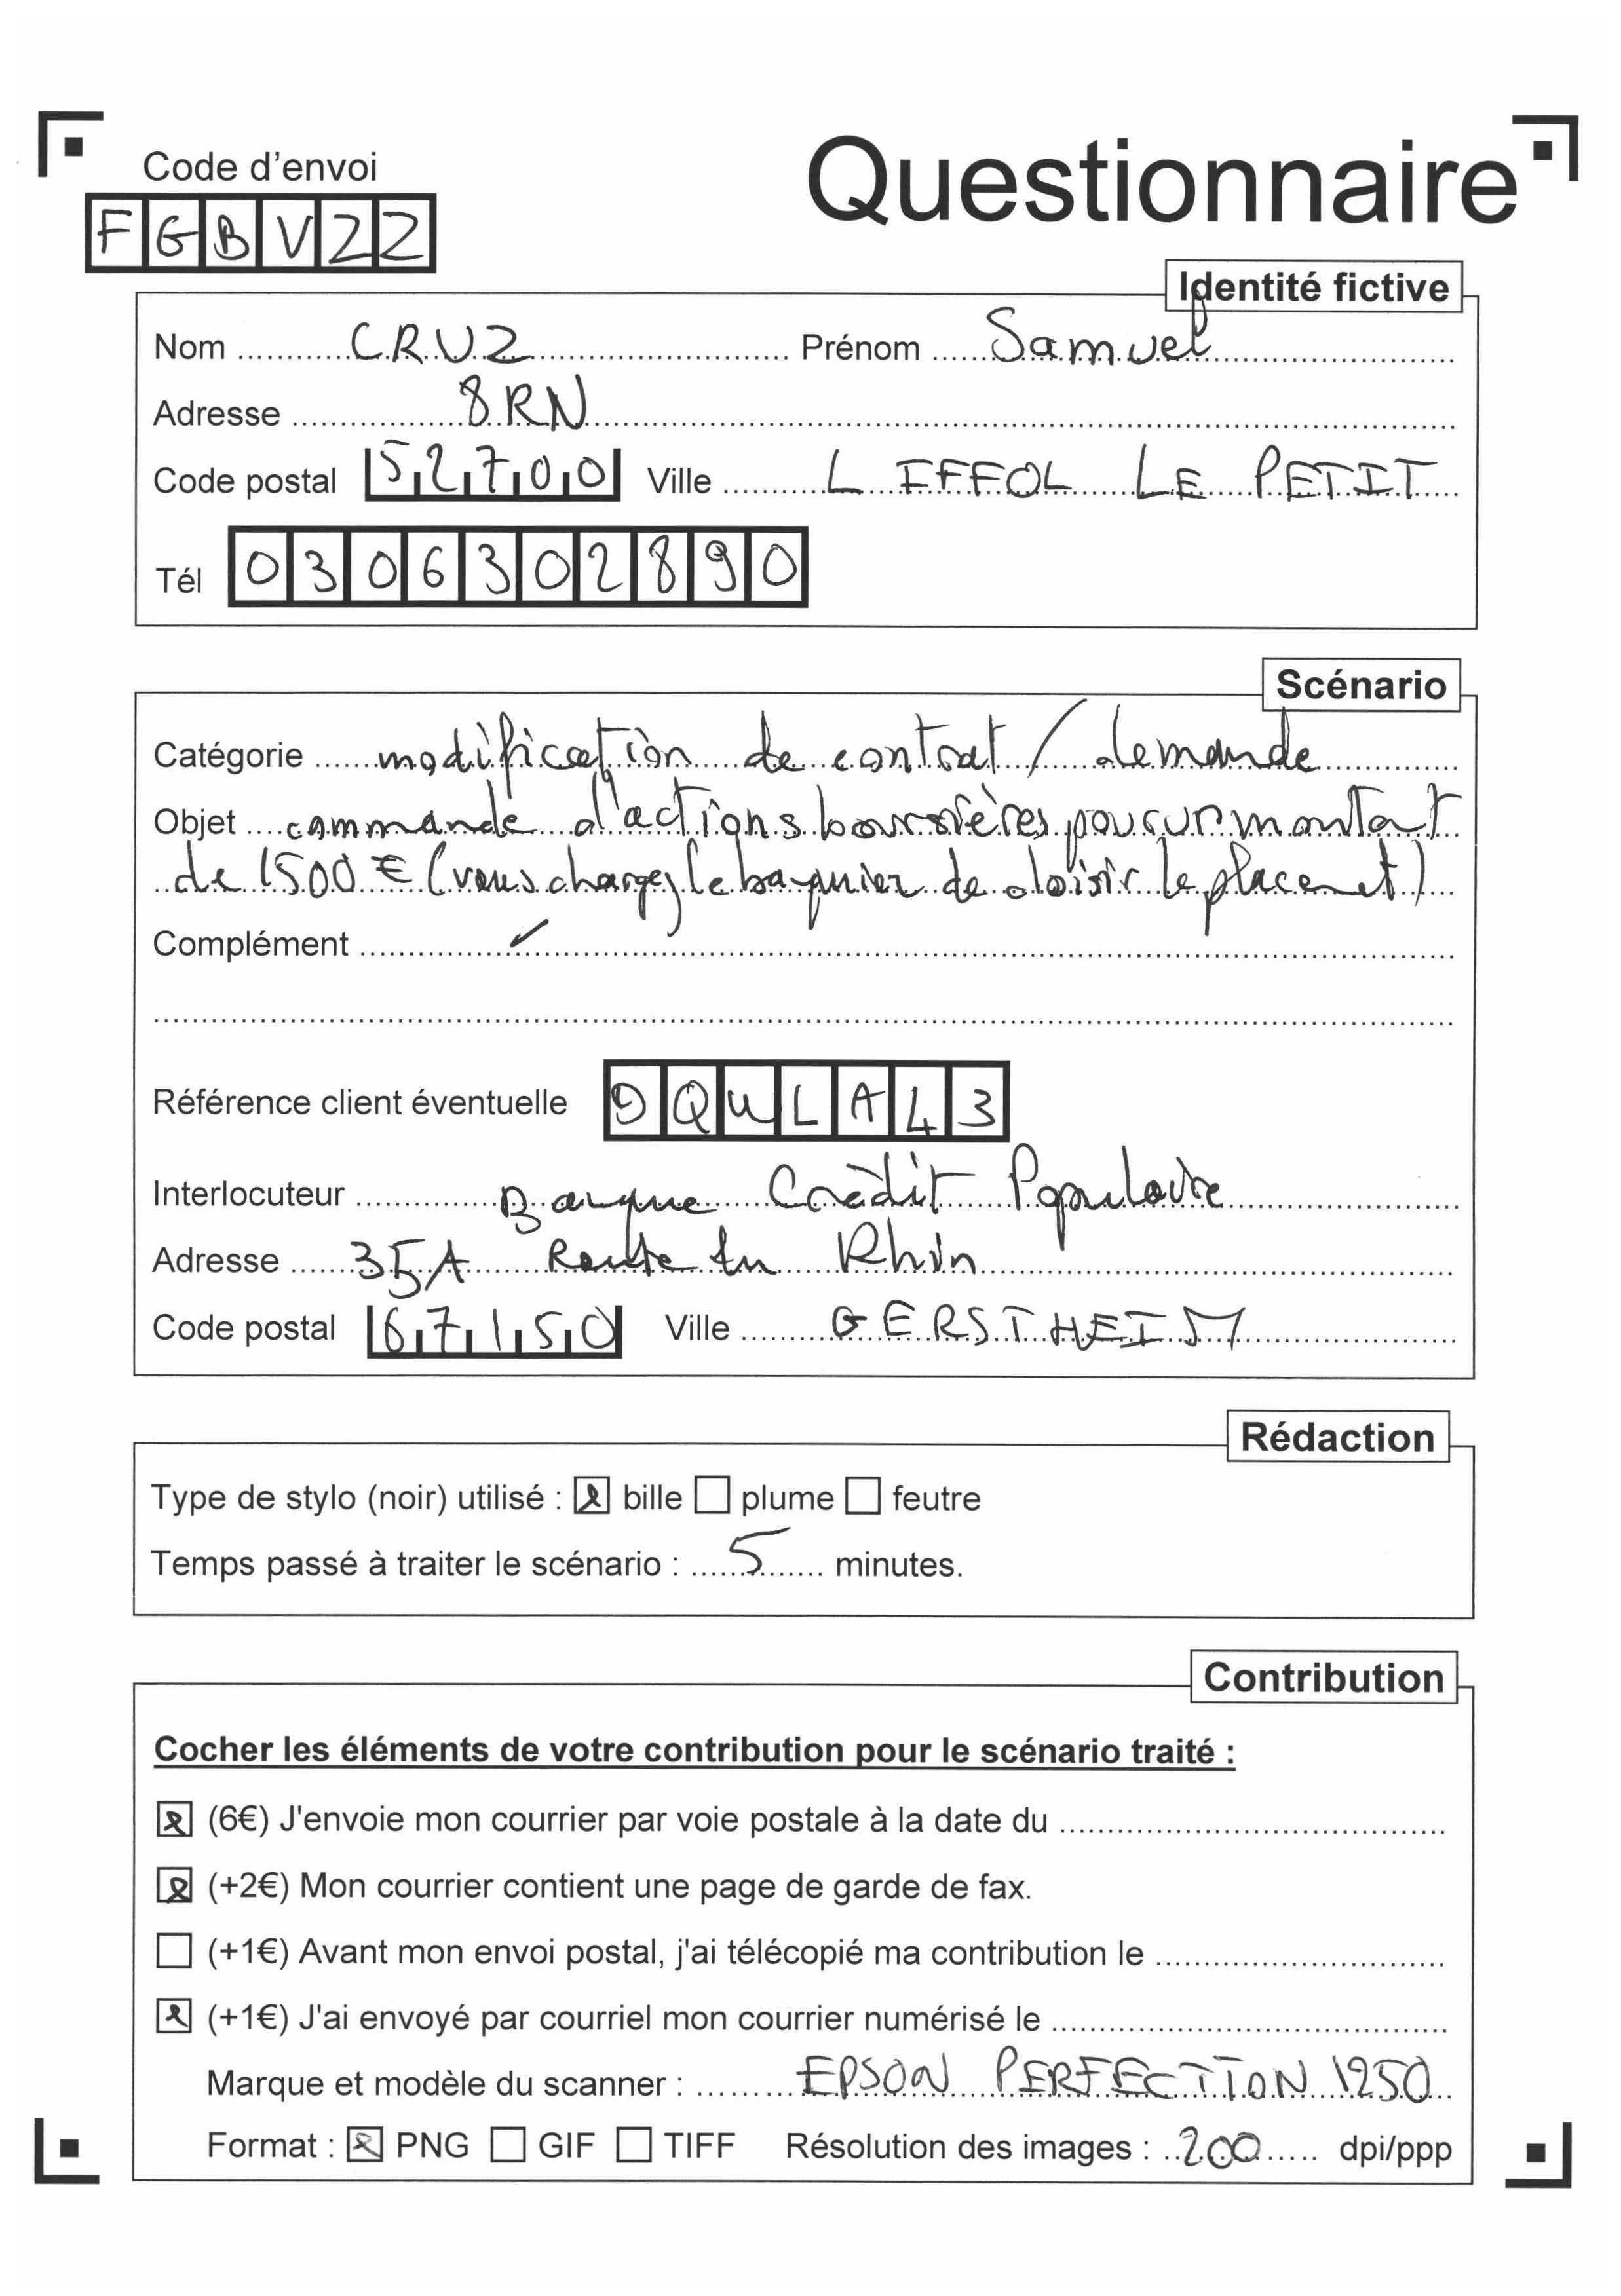 Code d'envoi
Questionnaire
FGBVZZ
Identité fictive
Nom CRUZ Prénom Samuel
Adresse 8 RN
Code postal 52700 Ville LIFFOL LE PETIT
Tél 0306302890
Scénario
Catégorie modification de contrat / demande
Objet commande d'actions boursières pour un montant
de 1500 € (vous chargez le baquier de choisir le placemet)
Complément
Référence client éventuelle DQWLA43
Interlocuteur Banque Crédit Populaire
Adresse 35A Route du Rhin
Code postal 67150 Ville GERSTHEIM
Rédaction
Type de stylo (noir) utilisé : bille plume feutre
Temps passé à traiter le scénario : 5 minutes.
Contribution
Cocher les éléments de votre contribution pour le scénario traité :
(6€) J'envoie mon courrier par voie postale à la date du
(+2€) Mon courrier contient une page de garde de fax.
(+1€) Avant mon envoi postal, j'ai télécopié ma contribution le
(+1€) J'ai envoyé par courriel mon courrier numérisé le
Marque et modèle du scanner : EPSON PERFECTION 1250
Format : PNG GIF TIFF Résolution des images : 200 dpi/ppp